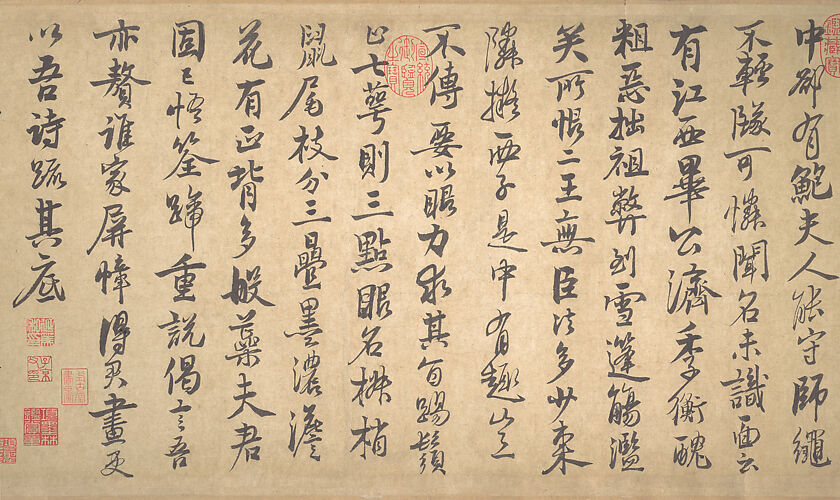 中郎有鮑夫人能守師繩
不輕墜可憐聞名未識面云
有江西畢公濟季衡醜
粗惡拙祖弊到雪蓬觴濫
矣所恨二王無臣法多少東
隣擬西子是中有趣豈
不傳要以眼力求其旨踢鬚
止七萼則三點眼名椒梢
鼠尾枝分三疊墨濃澹
花有正背多般蘂夫君
固已悟筌蹄重說偈言吾
亦贅誰家屏幛得君畫更
以吾詩疏其底